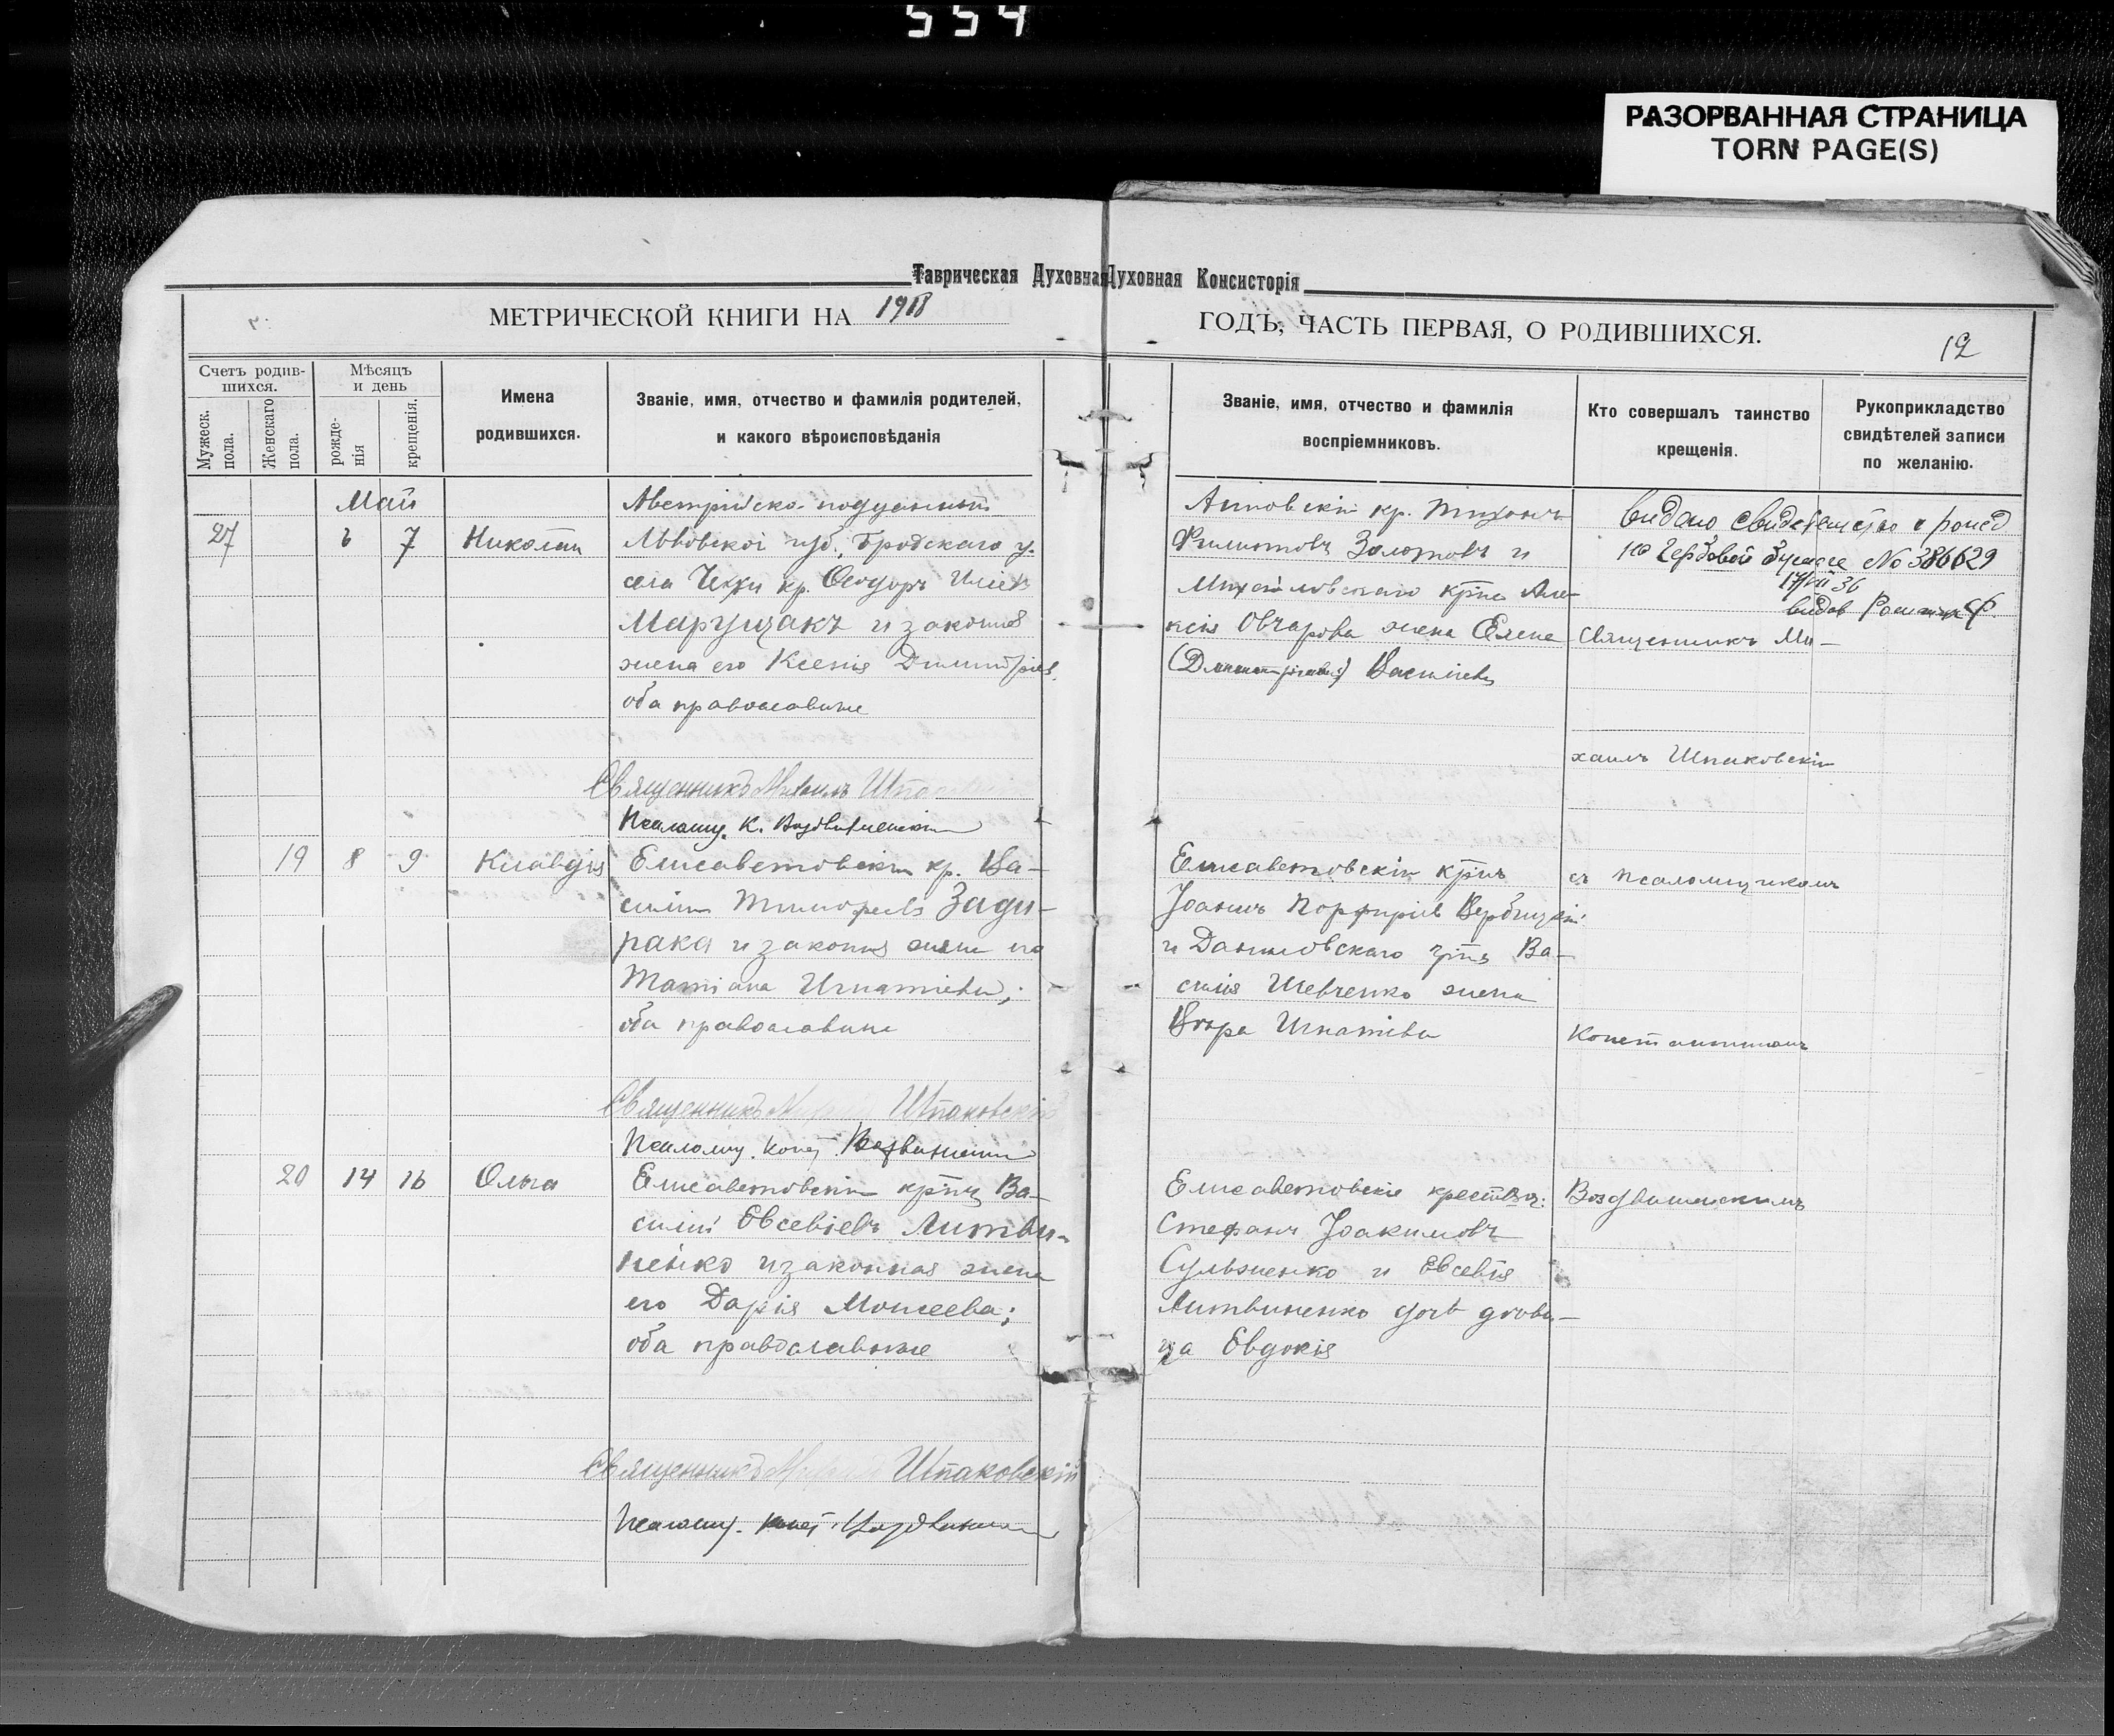 554
РАЗОРВАННАЯ СТРАНИЦА
TORN PAGE(S)
Таврическая Духовная
Духовная Консисторія
МЕТРИЧЕСКОЙ КНИГИ НА 1918
ГОДЪ, ЧАСТЬ ПЕРВАЯ, О РОДИВШИХСЯ.
12
Счетъ родив-
шихся.
Мужеск. пола.
Женскаго пола.
Мѣсяцъ
и день
рожде-
нія
крещенія.
Имена
родившихся.
Званіе, имя, отчество и фамилія родителей,
и какого вѣроисповѣданія
Званіе, имя, отчество и фамилія
воспріемниковъ.
Кто совершалъ таинство
крещенія.
Рукоприкладство
свидѣтелей записи
по желанію.
Май
27 6 7 Николай
Австрійско-подданный
Львовской губ., Бродскаго у.
села Чехи кр. Ѳеодоръ Иліев
Марущакъ и законная
жена его Ксенія Димитріев.
оба православные
Священникъ Михаилъ
Псаломщ. К. Воздвиженскій
кр. Тихонъ
Филиповъ Золотовъ и
Михайловскаго кр-на Але-
ксія Овчарова жена Елена
Васильева
Видано свидетельство о рожд
по гербовой бумаге No 386629
17/VII 36
видав
Священникъ Ми-
хаилъ Шпаковскій
съ псаломщикомъ
Константиномъ
Воздвиженскимъ
19 8 9 Клавдія
Елисаветовскій кр. Ва-
силій Тимофеевъ Зади-
рака и законная жена его
Татіана Игнатіева;
оба православные
Священникъ Шпаковскій
Псаломщ. Конст. Воздвиженскій
Елисаветовскій кр-нъ
Іоаннъ Порфиріев Вербицкій
и Даниловскаго кр-на Ва-
силія Шевченко жена
Игнатіева
20 14 16 Ольга
Елисаветовскій кр-нъ Ва-
силій Евсевіевъ Литви-
ненко и законная жена
его Дарія Моисеева;
оба православные
Священникъ Шпаковскій
Псаломщ. Конст. Воздвиженскій
Елисаветовскіе крестьян:
Стефанъ Іоакимовъ
Сульженко и Евсевія
Литвиненко дочь дѣви-
ца Евдокія